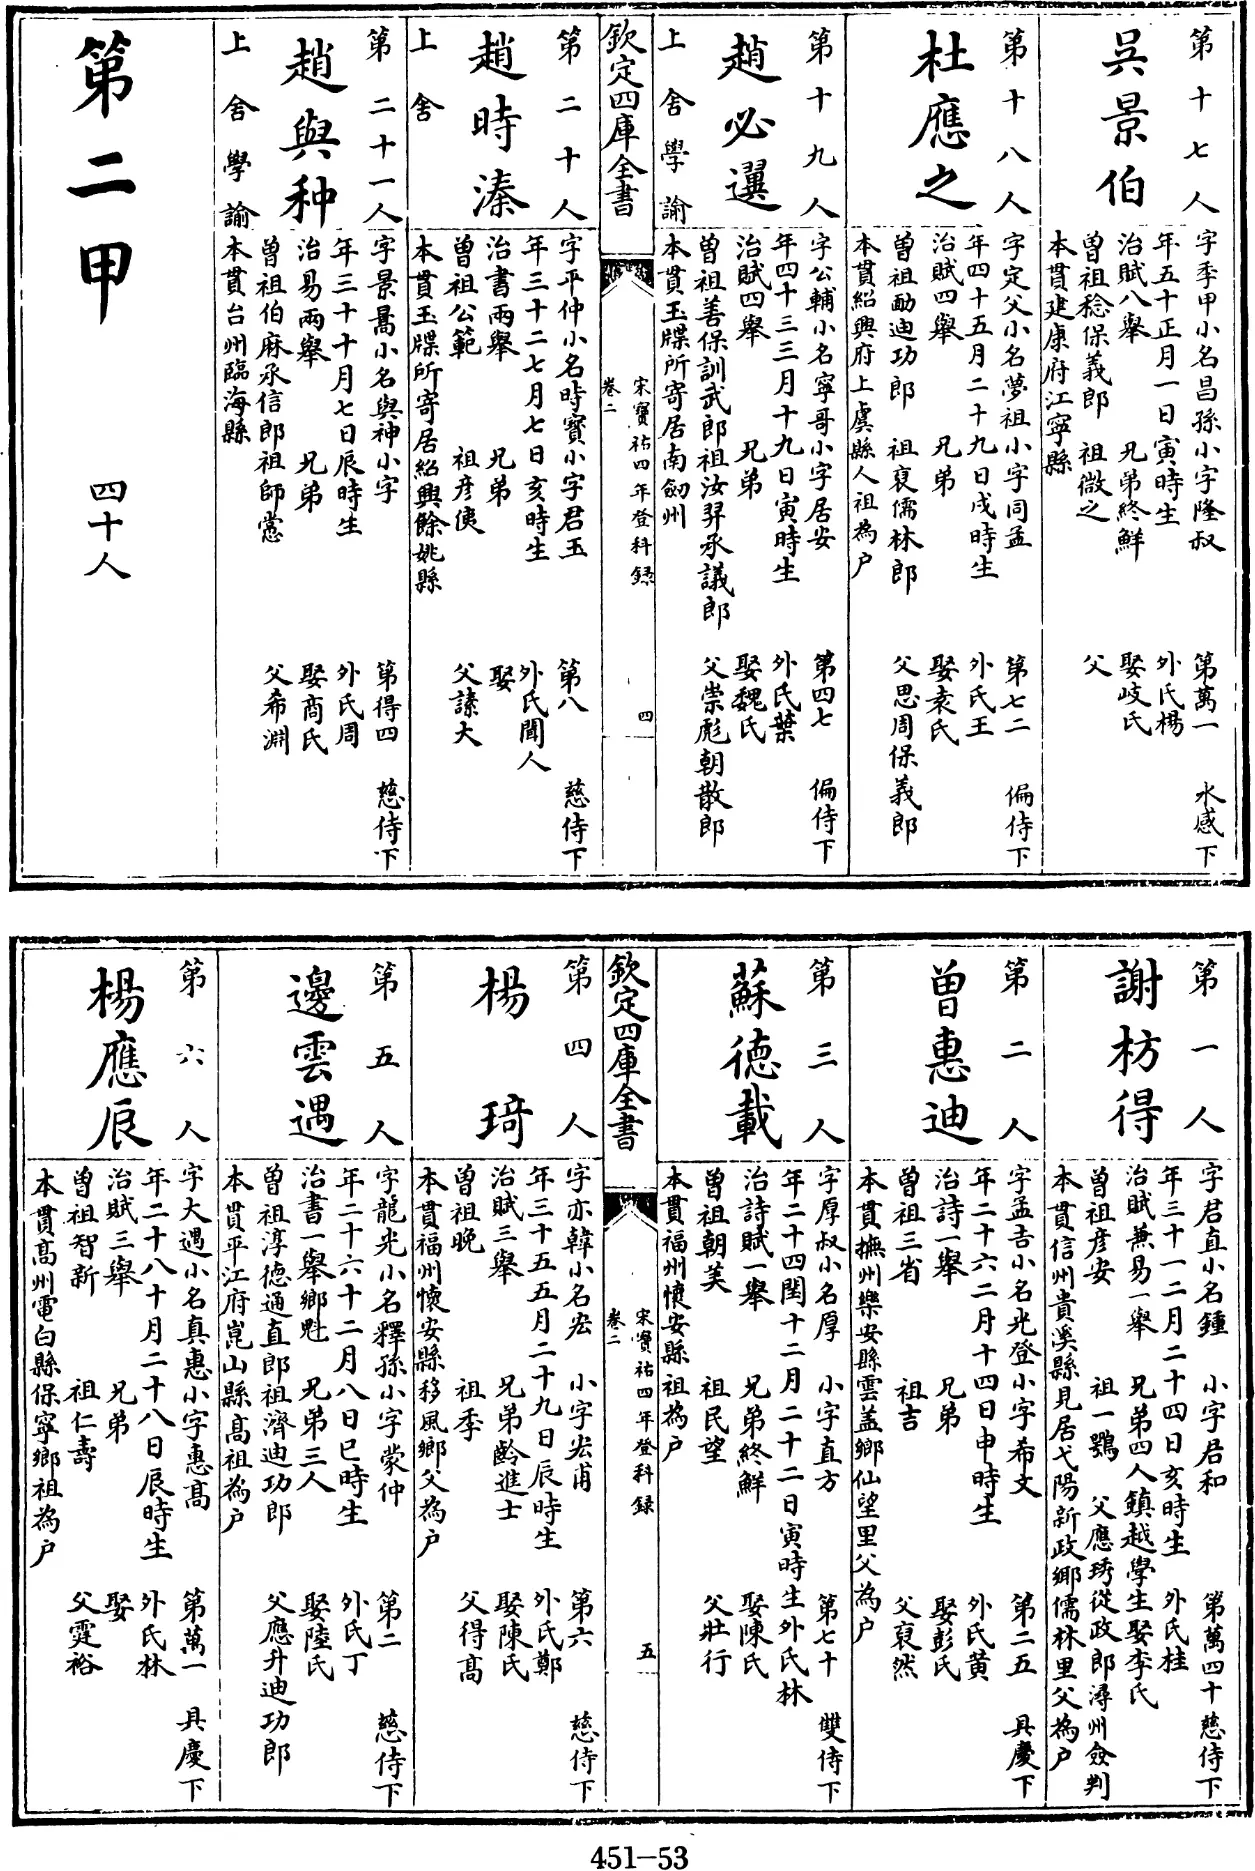 第十七人
吳景伯
字季甲小名昌孫小字隆叔 第萬一 永感下
年五十正月一日寅時生 外氏楊
治賦八舉 兄弟終鮮 娶岐氏
曾祖稔保義郎 祖微之 父
本貫建康府江寧縣
第十八人
杜應之
字定父小名夢祖小字同孟 第七二 偏侍下
年四十五月二十九日戌時生 外氏王
治賦四舉 兄弟 娶袁氏
曾祖勔迪功郎 祖袞儒林郎 父思周保義郎
本貫紹興府上虞縣人祖為户
第十九人
趙必選
字公輔小名寧哥小字居安 第四七 偏侍下
年四十三三月十九日寅時生 外氏葉
治賦四舉 兄弟 娶魏氏
曾祖善保訓武郎祖汝羿承議郎 父崇彪朝散郎
上舍學諭 本貫玉牒所寄居南劒州
欽定四庫全書
宋寶祐四年登科録
卷二
四
第二十人
趙時溱
字平仲小名時寶小字君玉 第八 慈侍下
年三十二七月七日亥時生 外氏聞人
治書兩舉 兄弟 娶
曾祖公範 祖彦 父諫大
上舍 本貫玉牒所寄居紹興餘姚縣
第二十一人
趙與种
字景暠小名與神小字 第得四 慈侍下
年三十十月七日辰時生 外氏周
治易兩舉 兄弟 娶商氏
曾祖伯麻承信郎祖師 父希淵
上舍學諭 本貫台州臨海縣
第二甲 四十人
第一人
謝枋得
字君直小名鍾 小字君和 第萬四十慈侍下
年三十一二月二十四日亥時生 外氏桂
治賦兼易一舉 兄弟四人鎮越學生娶李氏
曾祖彦安 祖一鶚 父應琇從政郎潯州僉判
本貫信州貴溪縣見居弋陽新政鄉儒林里父為户
第二人
曾惠迪
字孟吉小名光登小字希文 第二五 具慶下
年二十六二月十四日申時生 外氏黄
治詩一舉 兄弟 娶彭氏
曾祖三省 祖吉 父袞然
本貫撫州樂安縣雲盖鄉仙望里父為户
第三人
蘇德載
字厚叔小名厚 小字直方 第七十 雙侍下
年二十四閏十二月二十二日寅時生外氏林
治詩賦一舉 兄弟終鮮 娶陳氏
曾祖朝美 祖民望 父壯行
本貫福州懷安縣祖為户
欽定四庫全書
宋寶祐四年登科録
卷二
五
第四人
楊琦
字亦韓小名宏 小字宏甫 第六 慈侍下
年三十五五月二十九日辰時生 外氏鄭
治賦三舉 兄弟齡進士 娶陳氏
曾祖晚 祖季 父得髙
本貫福州懷安縣移風鄉父為户
第五人
邊雲遇
字龍光小名釋孫小字蒙仲 第二 慈侍下
年二十六十二月八日巳時生 外氏丁
治書一舉鄉魁 兄弟三人 娶陸氏
曾祖淳德通直郎祖濟迪功郎 父應升迪功郎
本貫平江府崑山縣髙祖為户
第六人
楊應辰
字大遇小名真惠小字惠髙 第萬一 具慶下
年二十八十月二十八日辰時生 外氏林
治賦三舉 兄弟 娶
曾祖智新 祖仁壽 父霆裕
本貫髙州電白縣保寧鄉祖為户
451-53